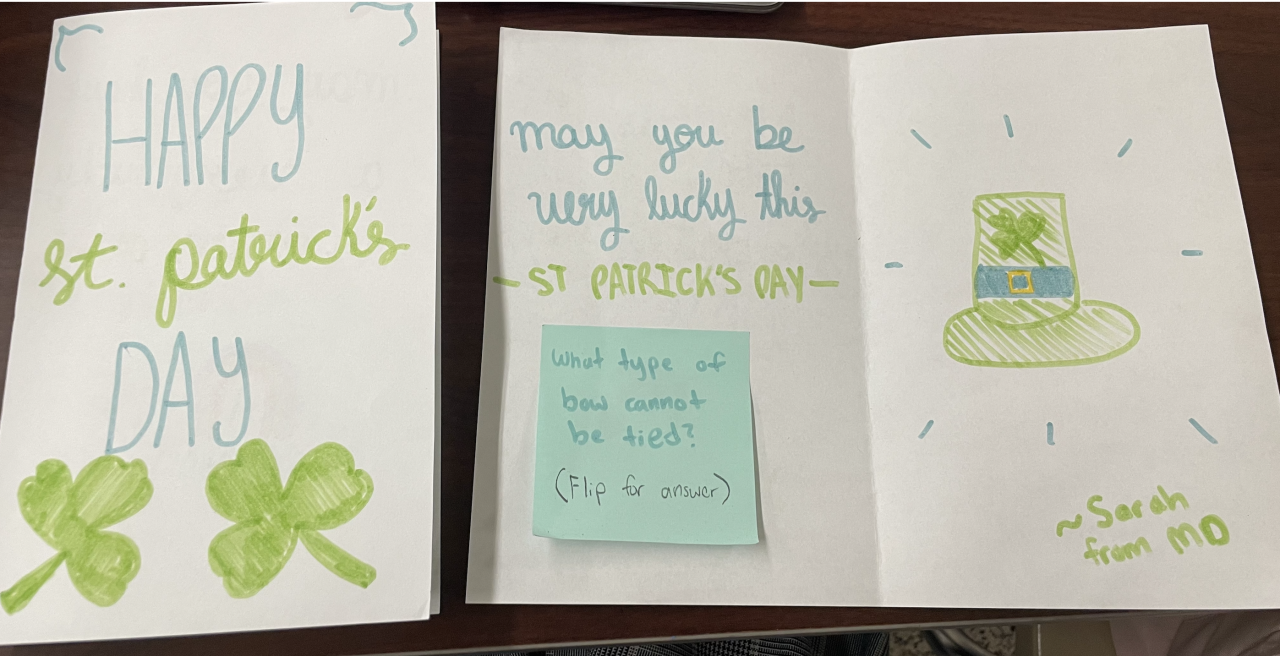 HAPPY
St. patrick's
DAY
may you be
very lucky this
- ST PATRICK'S DAY -
What type of
bow cannot
be tied?
(Flip for answer)
~ Sarah
from MD